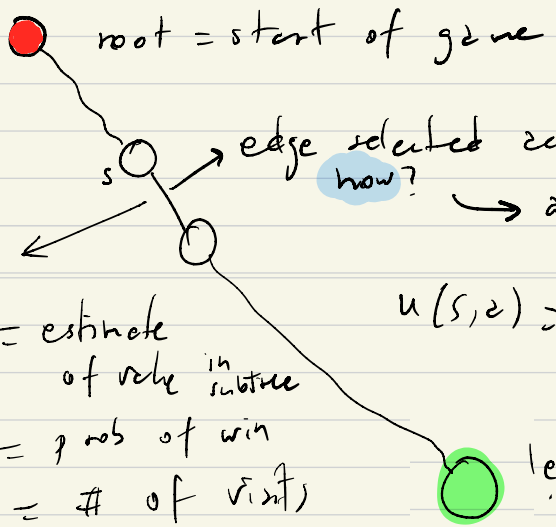 root = start of game
edge selected
s
how?
u(s,a) =
= estimate
of value in subtree
= prob of win
= # of visits
le